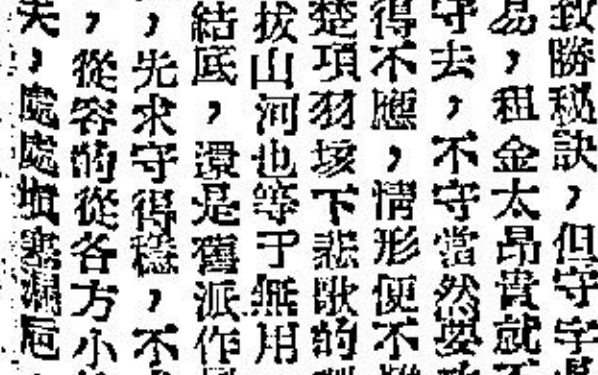 致勝秘訣,但守字
易,租金太昂貴就不
守去,不守當然要
得不應,情形便不
楚項羽垓下悲歌的
拔山河也等于無用
結底,還是舊派作
,先求守得穩,不
,從容的從各方小
失,處處填塞漏卮